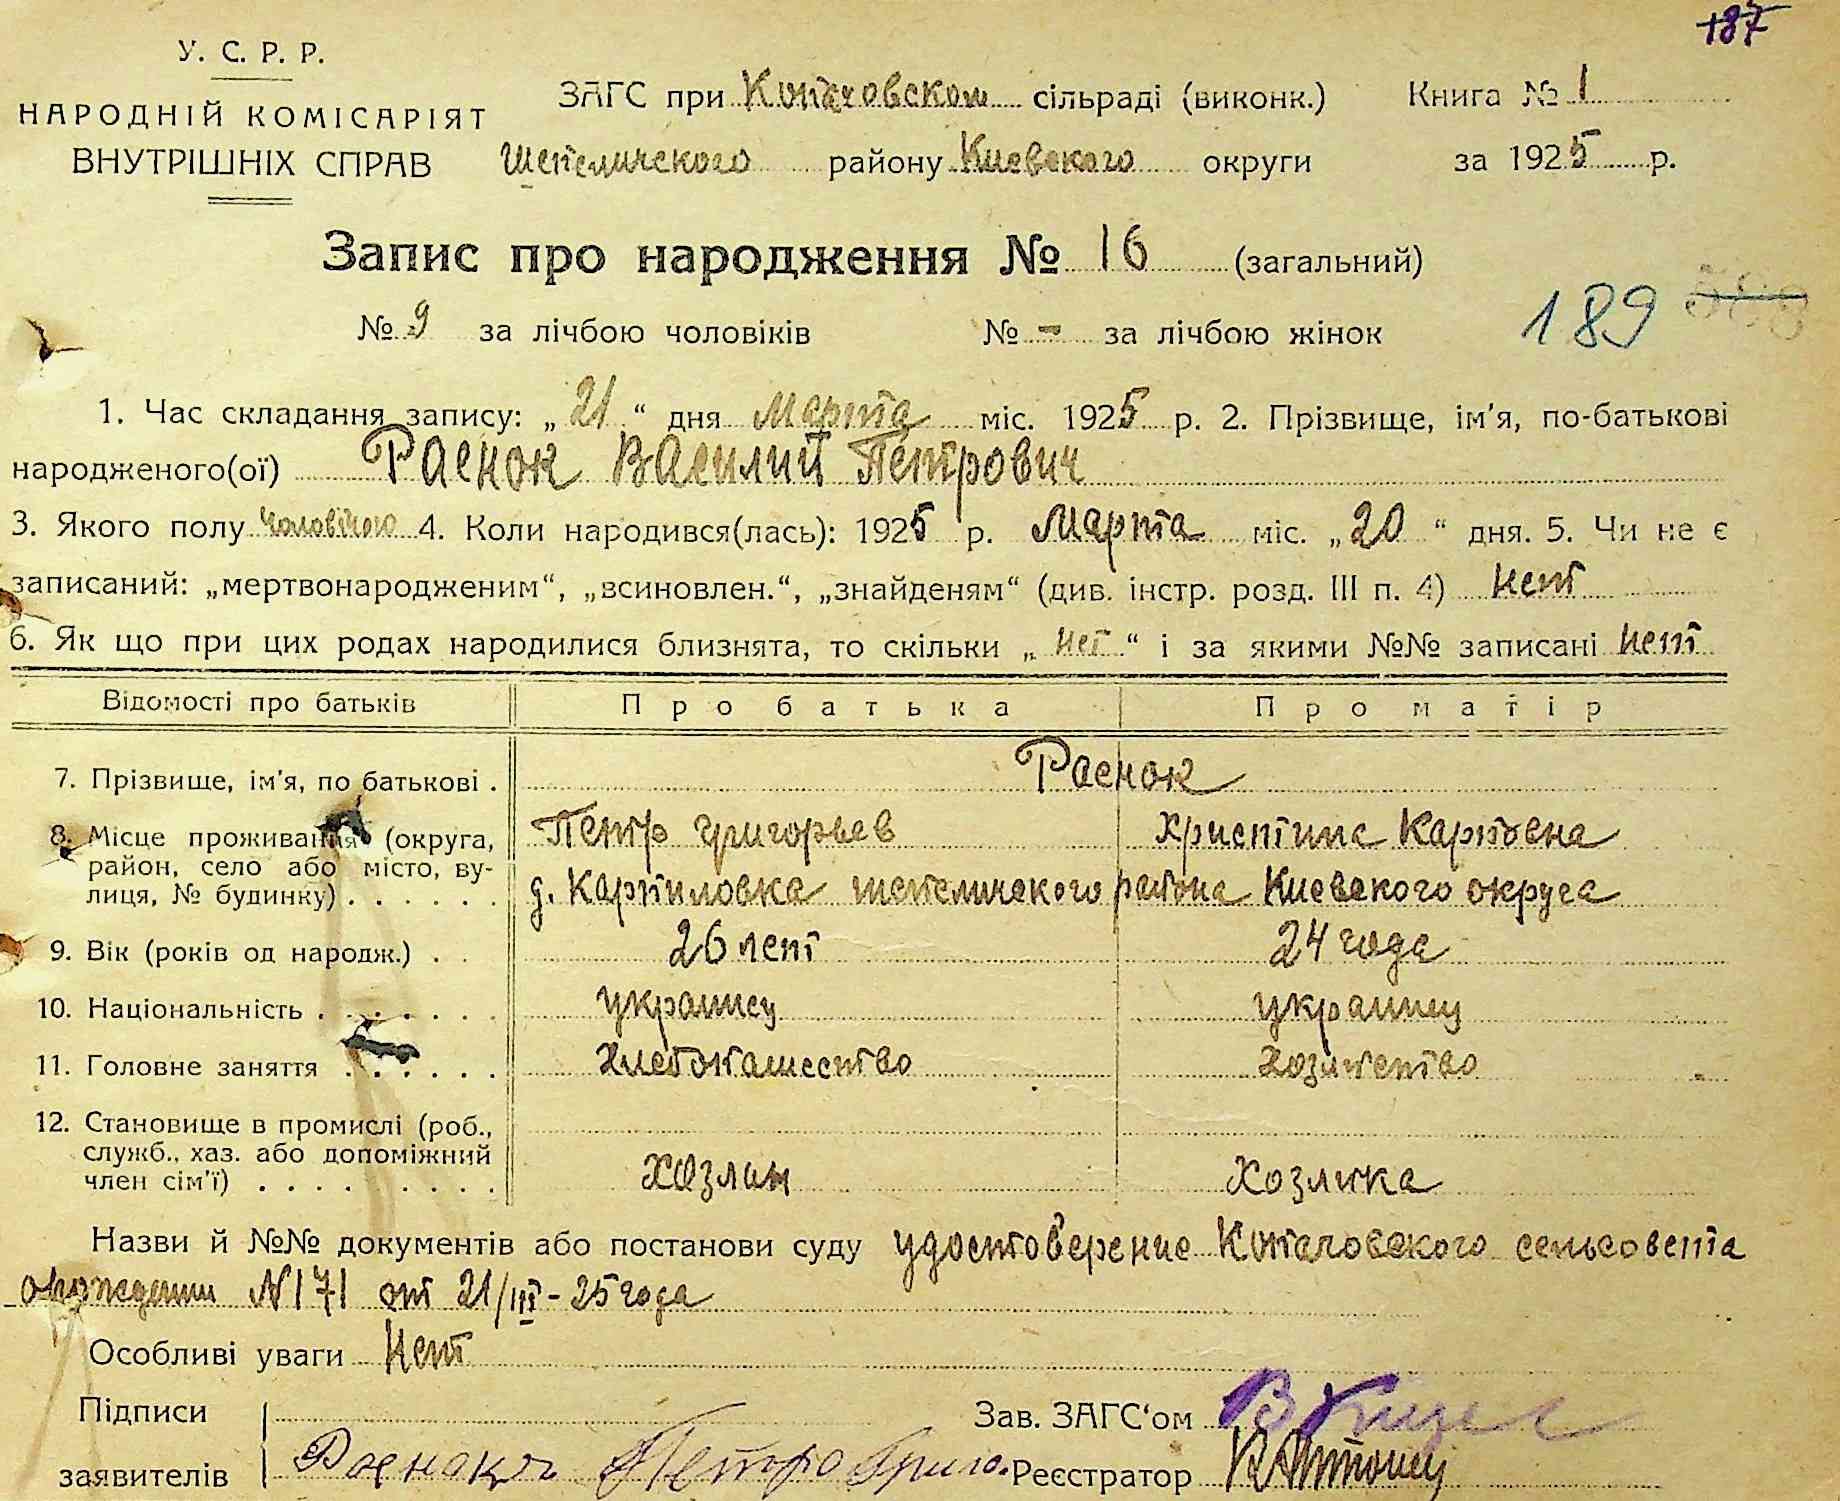 187
У. С. Р. Р.
НАРОДНІЙ КОМІСАРІЯТ
ВНУТРІШНІХ СПРАВ
ЗАГС при Копачовском сільраді (виконк.) Книга № 1
Шепеличского району Киевского округи за 1925 р.
Запис про народження № 16 (загальний)
№ 9 за лічбою чоловіків № - за лічбою жінок 189
1. Час складання запису: „21“ дня Марта міс. 1925 р. 2. Прізвище, ім'я, по-батькові
народженого(ої) Раенок Василий Петрович
3. Якого полу чоловічого 4. Коли народився(лась): 1925 р. Марта міс. „20“ дня. 5. Чи не є
записаний: „мертвонародженим“, „всиновлен.“, „знайденям“ (див. інстр. розд. III п. 4) нет
6. Як що при цих родах народилися близнята, то скільки „нет“ і за якими №№ записані нет
Відомості про батьків Про батька Про матір
7. Прізвище, ім'я, по батькові . Раенок
Петр Григорьев Христина Карповна
8. Місце проживання (округа, район, село або місто, вулиця, № будинку) . . . . . . д. Карпиловка шепеличского района Киевского округа
9. Вік (років од народж.) . . 26 лет 24 года
10. Національність . . . . . . . украинец украинец
11. Головне заняття . . . . . . Хлебопашество Хозяйство
12. Становище в промислі (роб., служб., хаз. або допоміжний член сім'ї) . . . . . . . . . Хозяин Хозяйка
Назви й №№ документів або постанови суду удостоверение Копачовского сельсовета
о рождении N 171 от 21/III - 25 года
Особливі уваги Нет
Підписи Зав. ЗАГС'ом
заявителів Раенокъ Петро Григо. Реєстратор